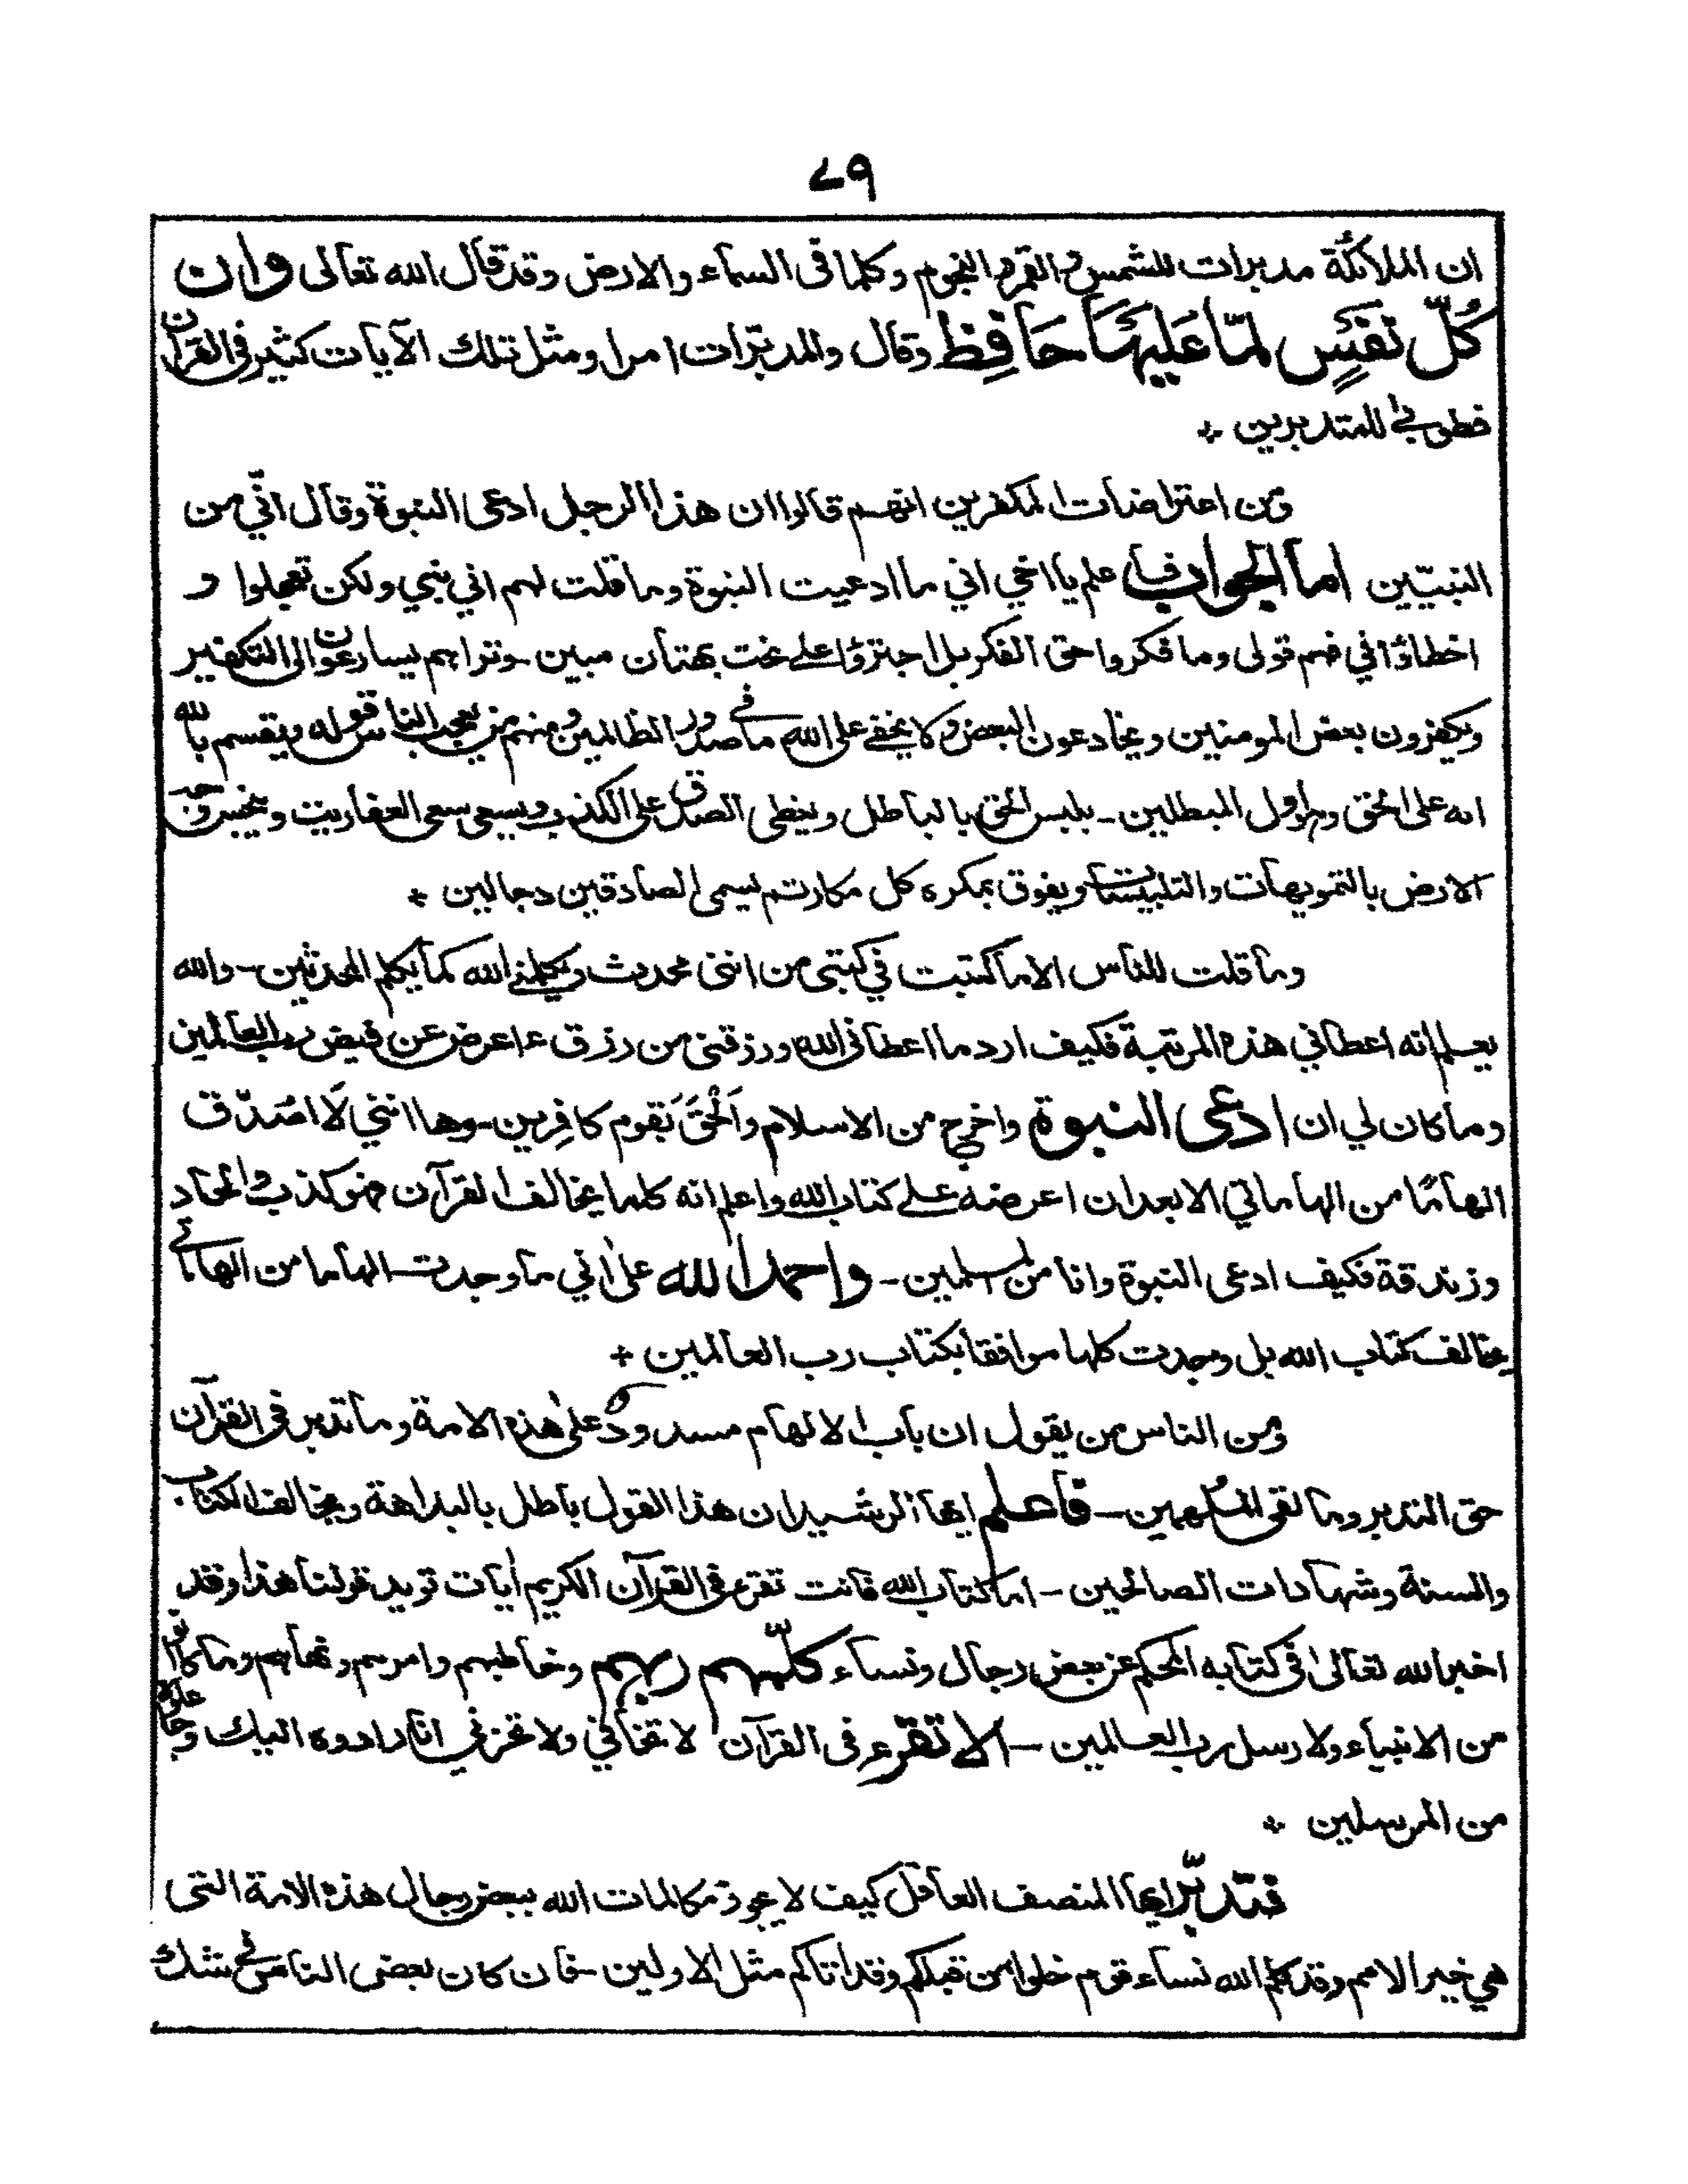 ٧٩
ان الملائكة مدبرات للشمس والقمر والنجوم وكلما فى السماء والارض وقد قال الله تعالى وان
كُلّ نَفَسٍ لمّا عَلَيهَا حَافِظ وقال والمدبّرات امرا ومثل تلك الآيات كثير فى القران
فطوبى للمتدبرين +
ومن اعتراضات المكفرين انهم قالوا ان هذا الرجل ادعى النبوة وقال انّي من
النبيّين اما الجواب فاعلم يا اخي اني ما ادعيت النبوة وما قلت لهم اني نبي ولكن تعجلوا و
اخطاؤا في فهم قولى وما فكروا حق الفكر بل اجترؤا على نحت بهتان مبين - وتراهم يسارعون الى التكفير
ويكفرون بعض المومنين ويخادعون البعض ولا يخفى على الله ما فى صدور الظالمين ومنهم من يعجب الناس قوله ويقسم بالله
انه على الحق وهو اول المبطلين - يلبس الحق بالباطل ويغطى الصدق على الكذب ويسعى سعى العفاريت وينجس وجه
الارض بالتمويهات والتلبيسات ويفوق بمكره كل مكار ثم يسمى الصادقين دجالين +
وما قلت للناس الا ما كتبت في كتبى من اننى محدث ويكلمنى الله كما يكلم المحدثين - والله
يعلم انه اعطاني هذه المرتبة فكيف ارد ما اعطانى الله ورزقنى من رزق ءاعرض عن فيض رب العالمين
وما كان لي ان ادعى النبوة واخرج من الاسلام واَلْحَقَ بَقوم كافِرين - وها اننى لَا اصَدّق
الهامًا من الهاماتي الا بعد ان اعرضه على كتاب الله واعلم انه كلما يخالف القرآن فهو كذب والحاد
وزندقة فكيف ادعى النبوة وانا من المسلمين - واحمد الله على اني ما وجدت الهاما من الهاماتى
يخالف كتاب الله بل وجدت كلها موافقا بكتاب رب العالمين +
ومن الناس من يقول ان باب الالهام مسدودٌ على هذه الامة وما تدبر فى القرآن
حق التدبر وما لقى المُلهمين - فاعلم ايها الرشيد ان هذا القول باطل بالبداهة ويخالف الكتاب
والسنة وشهادات الصالحين - اما كتاب الله فانت تقرء فى القرآن الكريم آيات تويد قولنا هذا وقد
اخبر الله تعالىٰ فى كتابه المحكم عن بعض رجال ونساء كلّمهم ربهم وخاطبهم وامرهم ونهاهم وما كانوا
من الانبياء ولا رسل رب العالمين - الا تقرء فى القرآن لا تخافي ولا تحزني انا رادوه اليك وجاعلوه
من المرسلين +
فتدبّر ايها المنصف العاقل كيف لا يجوز مكالمات الله ببعض رجال هذه الامة التى
هي خير الامم وقد كلم الله نساء قوم خلوا من قبلكم وقد اتاكم مثل الاولين - فان كان بعض الناس فى شك